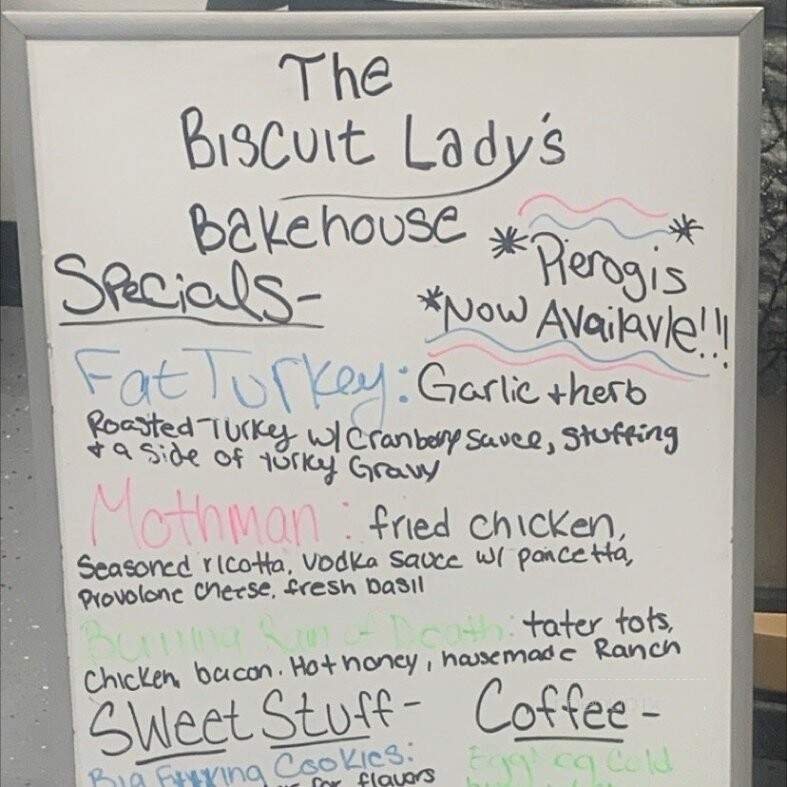 The
Biscuit Lady's
Bakehouse
*Pierogis*
Specials-
*Now Availavle!!!
Fat Turkey: Garlic + herb
Roasted Turkey w/ Cranberry sauce, stuffing
+ a side of turky Gravy
Mothman: fried chicken,
Seasoned ricotta, vodka sauce w/ pancetta,
Provolone cheese, fresh basil
Burning Ram of Death: tater tots,
Chicken, bacon. Hot honey, housemade Ranch
Sweet Stuff- Coffee-
Big F***king Cookies: Eggnog Cold
for flavors